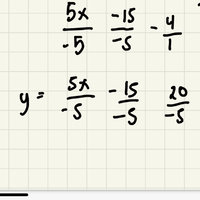 5x/-5 -15/-5 - 4/1
y = 5x/-5 - 15/-5 20/-5